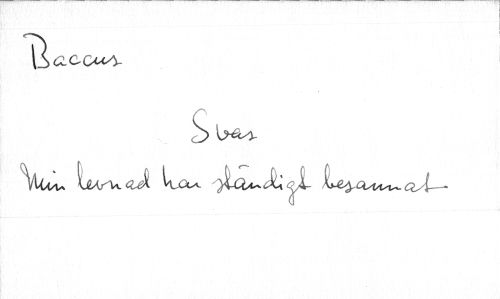 Baccus
Svar
Min levnad har ständigt besannat